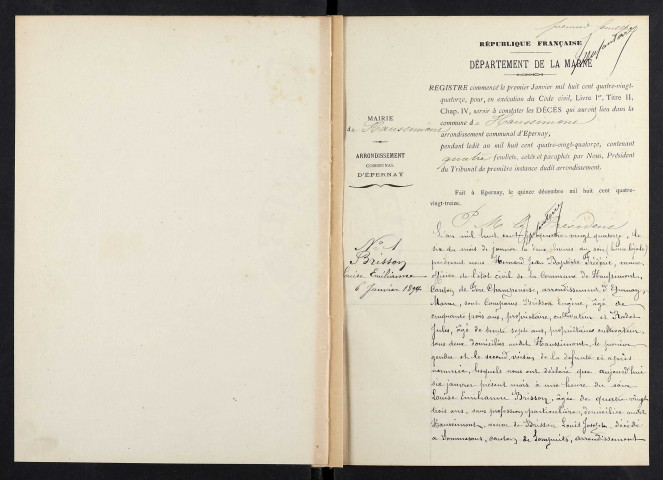 premier
RÉPUBLIQUE FRANÇAISE
DÉPARTEMENT DE LA MARNE
REGISTRE commencé le premier Janvier mil huit cent quatre-vingt-
quatorze, pour, en exécution du Code civil, Livre Ier, Titre II,
Chap. IV, servir à constater les DÉCÈS qui auront lieu dans la
commune de Haussimont
arrondissement communal d'Epernay,
pendant ledit an mil huit cent quatre-vingt-quatorze, contenant
quatre feuillets, cotés et paraphés par Nous, Président
du Tribunal de première instance dudit arrondissement.
MAIRIE
de Haussimont
ARRONDISSEMENT
COMMUNAL
D'ÉPERNAY
Fait à Epernay, le quinze décembre mil huit cent quatre-
vingt-treize.
P. M. le Président
No 1
Brisson
Louise Emilienne
6 Janvier 1894
L'an mil huit cent quatre-vingt quatorze, le
six du mois de janvier à deux heures du soir
pardevant nous Jean Baptiste maire,
officier de l'état civil de la Commune de Haussimont,
Canton de Fère Champenoise, arrondissement d'Epernay,
Marne, sont comparus Brisson Eugène, âgé de
cinquante trois ans, propriétaire, cultivateur et
Jules, âgé de trente sept ans, propriétaire cultivateur,
tous deux domiciliés audit Haussimont, le premier
gendre et le second voisin de la défunte ci après
nommée, lesquels nous ont déclaré que aujourd'hui
six janvier présent mois à une heure du soir
Louise Emilienne Brisson, âgée de quatre-vingt
trois ans, sans profession particulière, domiciliée audit
Haussimont, veuve de Brisson Louis Joseph, décédé
à Sommesous, canton de Sompuis, arrondissement